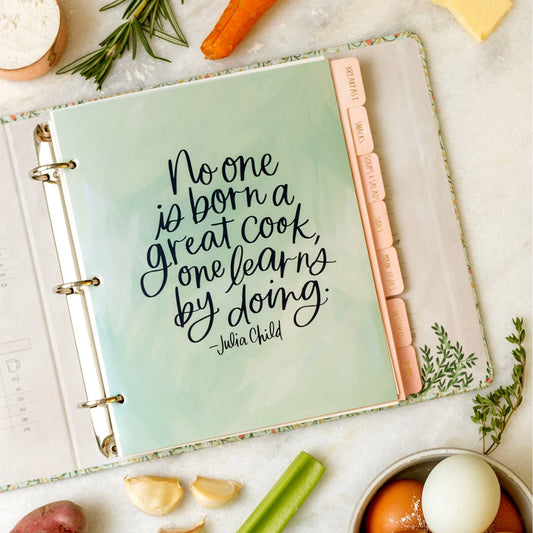 No one
is born a
great cook,
one learns
by doing.
—Julia Child
BREAKFAST
SNACKS
SOUPS & SALADS
SIDES
MAIN DISHES